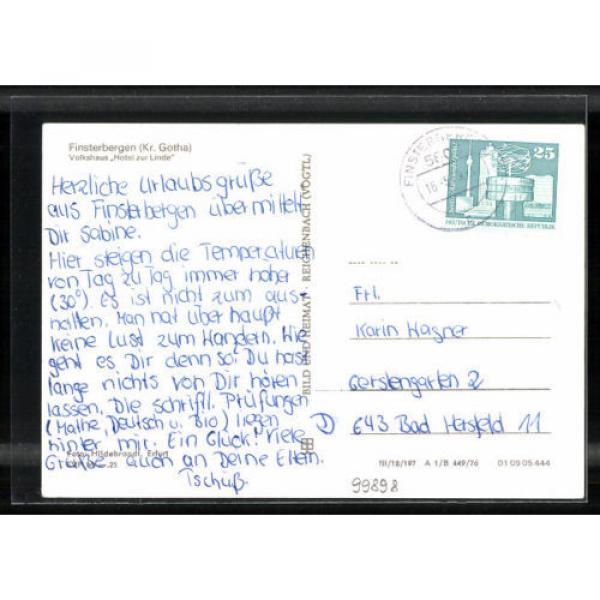 Finsterbergen (Kr. Gotha)
Volkshaus „Hotel zur Linde"
Herzliche Urlaubsgrüße
aus Finsterbergen übermittelt
Dir Sabine.
Hier steigen die Temperaturen
von Tag zu Tag immer höher
(30°). Es ist nicht zum aus-
halten. Man hat überhaupt
keine Lust zum Wandern. Wie
geht es Dir denn so? Du hast
lange nichts von Dir hören
lassen. Die schriftl. Prüfungen
(Mathe, Deutsch u. Bio) liegen
hinter mir. Ein Glück! Viele
Grüße auch an Deine Eltern.
Tschüß.
Foto: Hildebrandt, Erfurt
25
BILD UND HEIMAT · REICHENBACH (VOGTL)
FINSTERBERGEN
580
16
25
DEUTSCHE DEMOKRATISCHE REPUBLIK
Frl.
Karin Wagner
Gerstengarten 2
D 643 Bad Hersfeld 11
III/18/197 A 1/B 449/76 01 09 05 444
99898